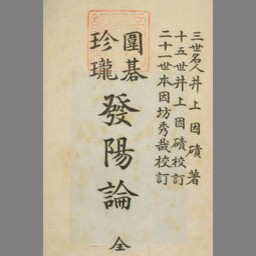 三世名人井上因磧著
十五世井上因磧校訂
二十一世本因坊秀哉校訂
圍碁
珍瓏
發陽論
全